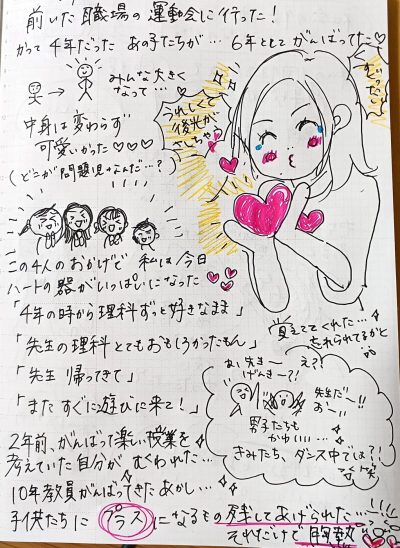 前いた職場の運動会に行った!
かつて4年だったあの子たちが… 6年としてがんばってた♡
みんな大きく
なって…
中身は変わらず
可愛いかった♡♡♡
(どこが問題児なんだ…?)
うれしくて
後光が
さしちゃう
この4人のおかげで 私は今日
ハートの器がいっぱいになった
「4年の時から理科ずっと好きなまま」
「先生の理科とてもおもしろかったもん」
「先生 帰ってきて」
「またすぐに遊びに来て!」
覚えててくれた…
忘れられてるかと
え?!
げんきー?!
先生だー!!
おーい
男子たちも
かわいい…
きみたち、ダンス中では?!
2年前、がんばって楽しい授業を
考えていた自分が むくわれた…
10年教員がんばってきたあかし…
子供たちに プラス になるもの残してあげられた…
それだけで胸熱